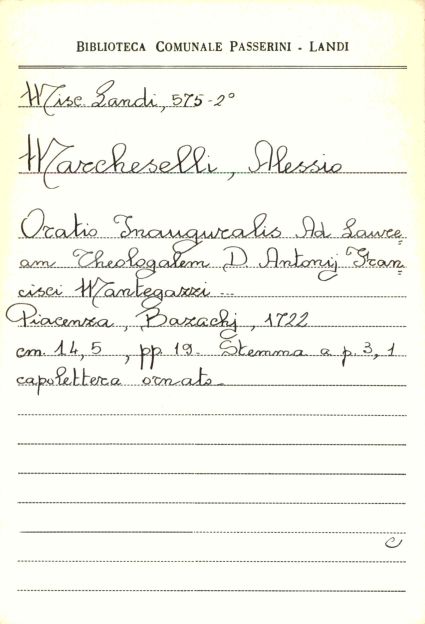 BIBLIOTECA COMUNALE PASSERINI - LANDI
Misc. Landi, 575-2°
Marcheselli, Alessio
Oratio Inauguralis Ad Laure=
am Theologalem D. Antonij Fran=
cisci Mantegazzi ...
Piacenza, Bazachj, 1722
cm. 14,5 , pp 19. Stemma a p. 3, 1
capolettera ornato.
C